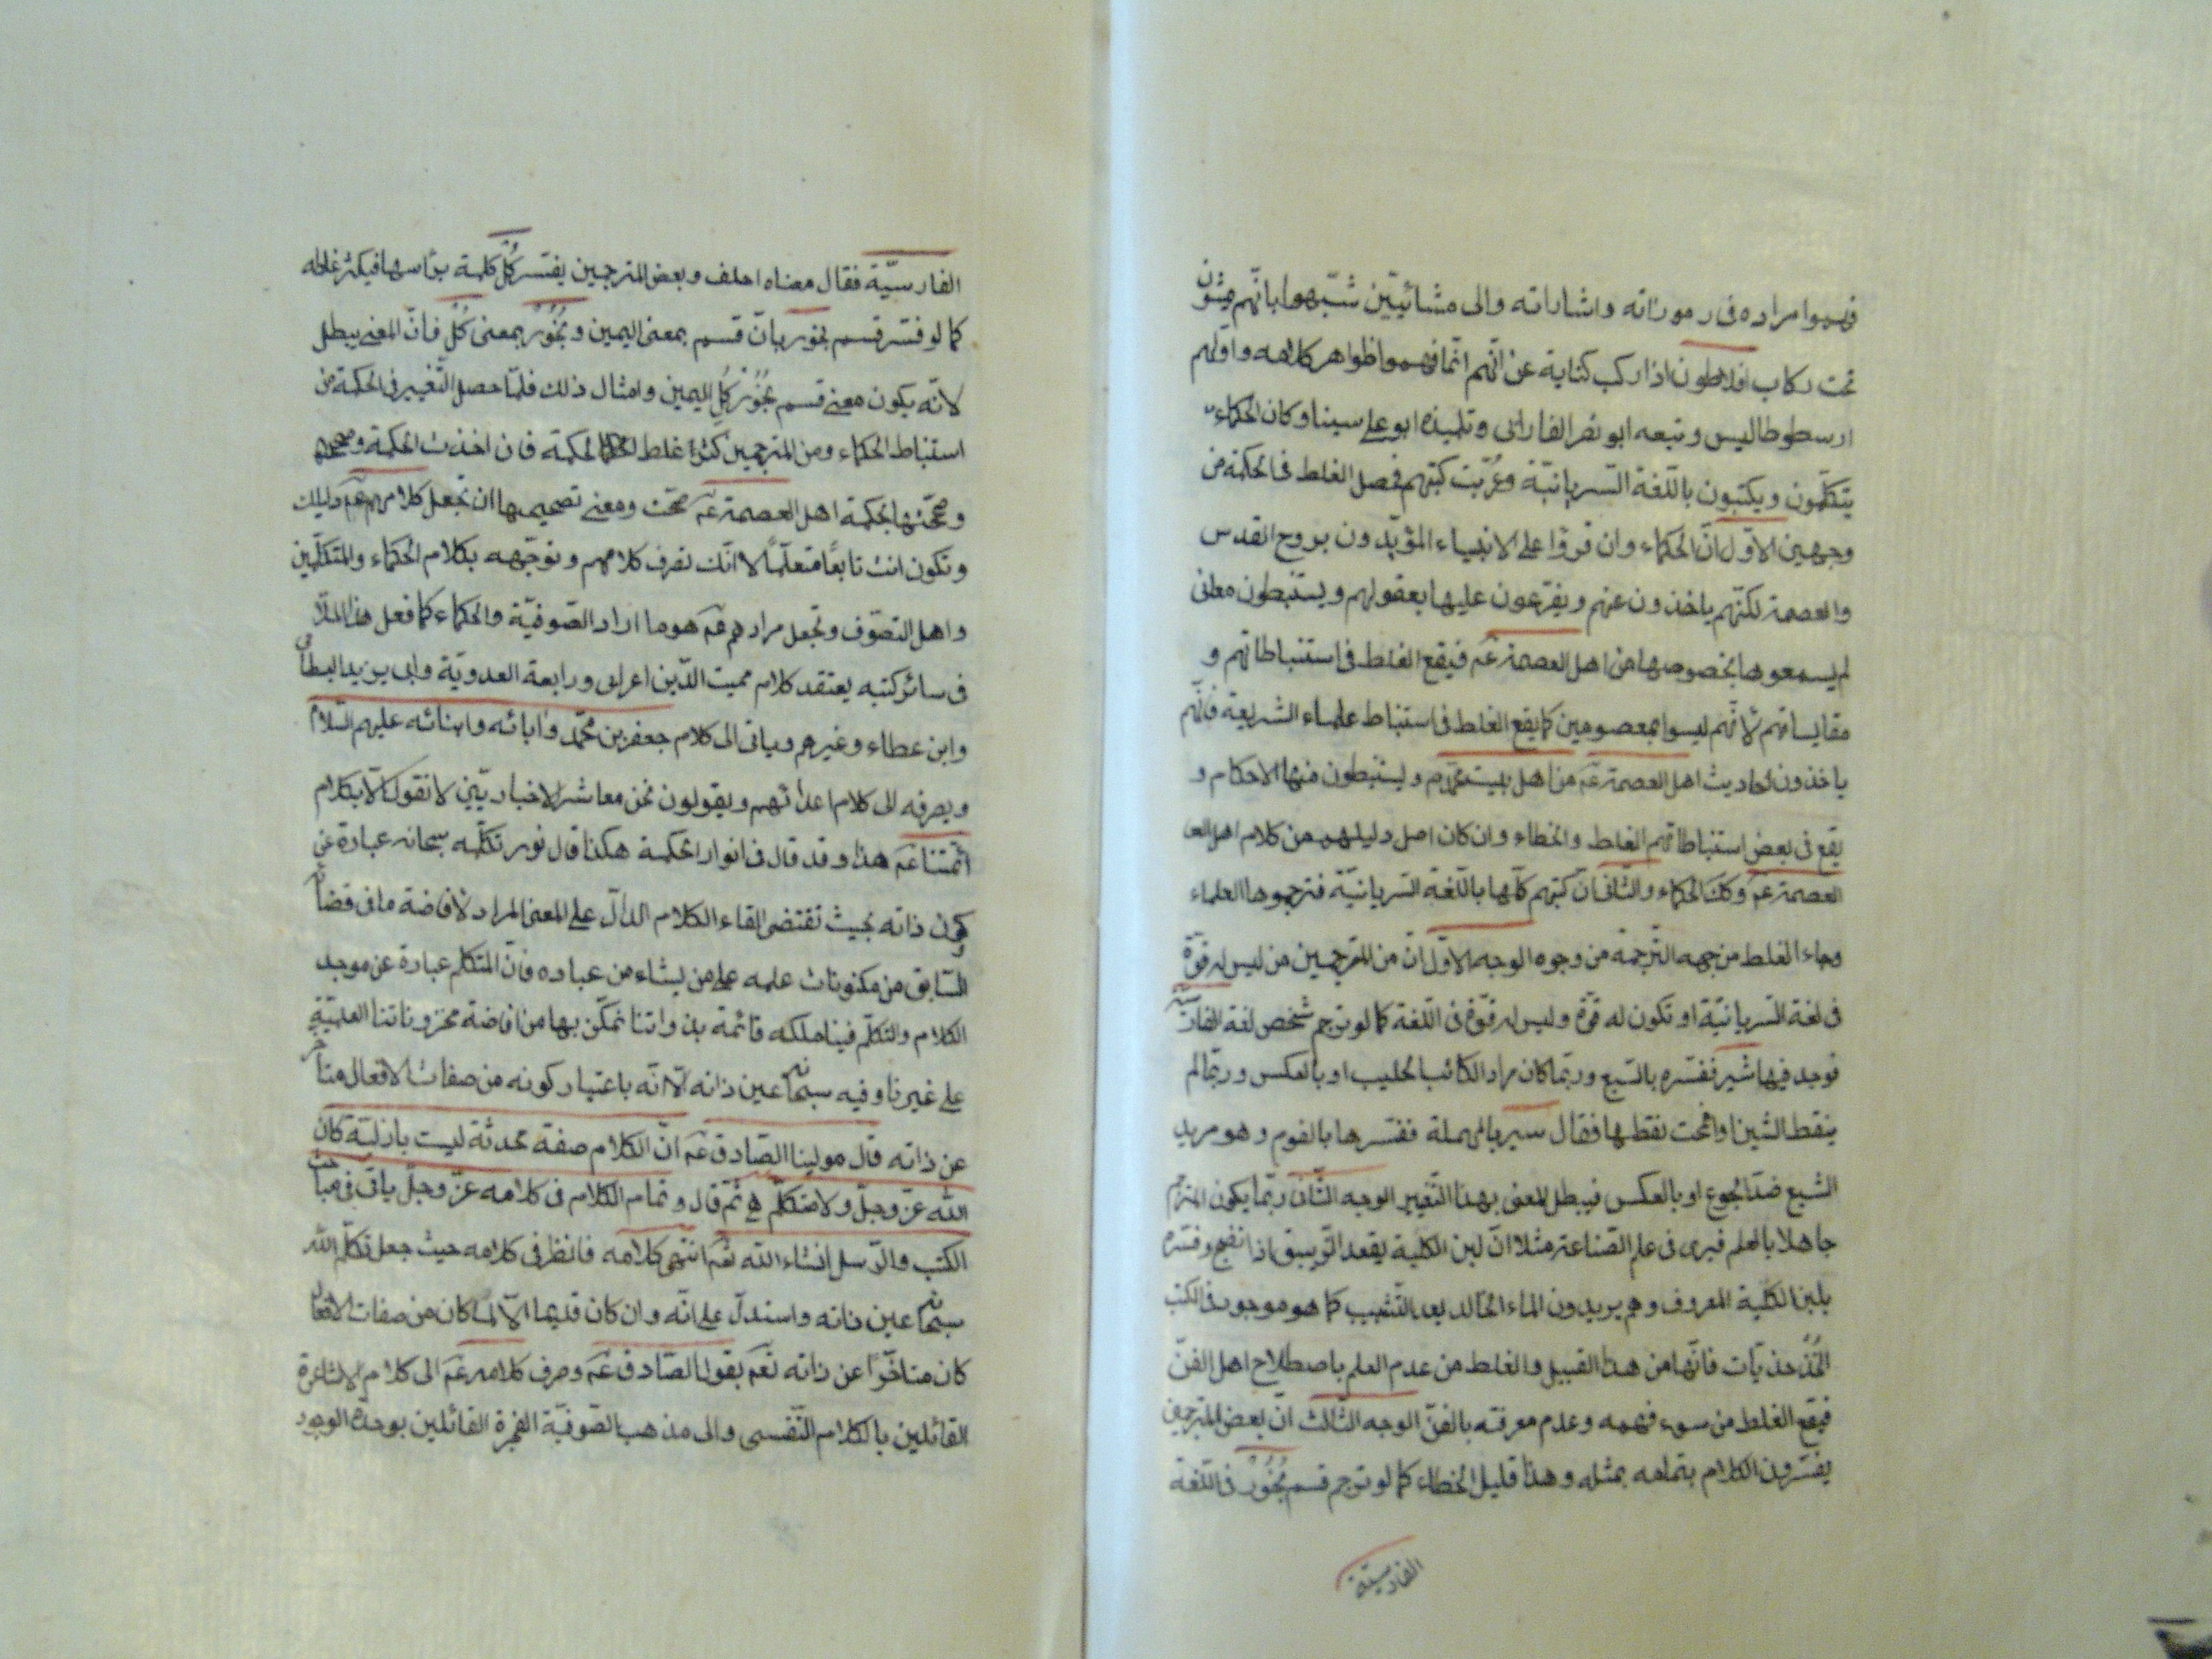 فهموا مراده فى رموزاته واشاراته والى مشائيّين شبّهوا بانّهم يمشون
تحت ركاب افلاطون اذا ركب كناية عن انّهم انّما فهموا ظواهر كلامه واوّلهم
ارسطوطاليس وتبعه ابو نصر الفارابى وتلميذه ابو على سينا وكان الحكماء
يتكلّمون ويكتبون باللّغة السّريانيّة وعُرّبت كتبهم فحصل الغلط فى الحكمة من
وجهين الاوّل انّ الحكماء وان قرؤا على الانبياء المؤيّدون بروح القدس
والعصمة لكنّهم ياخذون عنهم ويفرّعون عليها بعقولهم ويستنبطون معانى
لم يسمعوها بخصوصها من اهل العصمة عم فيقع الغلط فى استنباطاتهم و
مقايساتهم لانّهم ليسوا بمعصومين كما يقع الغلط فى استنباط علماء الشريعة فانّهم
ياخذون احاديث اهل العصمة عم من اهل بيت محمّد ص ويستنبطون منها الاحكام و
يقع فى بعض استنباطاتهم الغلط والخطاء وان كان اصل دليلهم من كلام اهل العصـ
العصمة عم وكذا الحكماء والثّانى انّ كتبهم كلّها باللّغة السّريانيّة فترجموها العلماء
وجاء الغلط من جهه التّرجمة من وجوه الوجه الاوّل انّ من المترجمين من ليس له قوّة
فى لغة السّريانيّة او تكون له قوّة وليس له قوّة فى اللّغة كما لو ترجم شخص لغة الفارسيّة
فوجد فيها شير ففسّره بالسّبع وربّما كان مراد الكاتب الحليب او بالعكس وربّما لم
ينقط الشين او انمحت نقطها فقال سير بالمهملة ففسّرها بالفوم وهو مريد
الشبع ضدّ الجوع او بالعكس فيبطل المعنى بهذا التّغيير الوجه الثّانى ربّما يكون المترجم
جاهلا بالعلم فيرى فى علم الصّناعة مثلا انّ لبن الكلبة يعقد الزّيبق اذا نفج وفسّره
بلبن الكلبة المعروف وهم يريدون الماء الخالد بعد التّشبيب كما هو موجود فى الكتب
فانّها من هذا القبيل والغلط من عدم العلم باصطلاح اهل الفنّ
فيقع الغلط من سوء فهمه وعدم معرفته بالفنّ الوجه الثّالث انّ بعض المترجمين
يفسّرون الكلام بتمامه بمثله وهذا قليل الخطاء كما لو ترجم قسم بُخُورْ فى اللّغة
الفارسيّة
الفارسيّة فقال معناه احلف وبعض المترجمين يفسّر كُلّ كلمة براسها فيكثر غلطه
كما لو فسّر قسم بخور بانّ قسم بمعنى اليمين وبُخُورْ بمعنى كُلْ فانّ المعنى يبطل
لانّه يكون معنى قسم بُخُورْ كُلِ اليمين وامثال ذلك فلمّا حصل التّغيير فى الحكمة من
استنباط الحكماء ومن المترجمين كثرة غلط الحكمة فان اخذت الحكمة
وصحّحتها بحكمة اهل العصمة عم صحّت ومعنى تصحيحها ان تجعل كلامهم عم دليلك
وتكون انت تابعًا متعلّمًا لا انّك تعرف كلامهم وتوجّهه بكلام الحكماء والمتكلّمين
واهل التصوّف وتجعل مرادهم عم هو ما اراد الصّوفيّة والحكماء كما فعل هذا الملّا
فى سائر كتبه يعتقد كلام مميت الدّين اعرابى ورابعة العدويّة وابى يزيد البسطامى
وابن عطاء وغيرهم وياتى الى كلام جعفر بن محمّد وابائه وابنائه عليهم السّلام
ويصرفه الى كلام اعدائهم ويقولون نحن معاشر الاخباريّين لا نقول الّا بكلام
ائمّتنا عم هذا وقد قال فى انوار الحكمة هكذا قال نور تكلّمه سبحانه عبارة عن
كون ذاته بحيث تقتضى القاء الكلام الدّالّ على المعنى المراد لافاضة ما فى قضائه
السّابق من مكنونات علمه على من يشاء من عباده فانّ المتكلم عبارة عن موجد
الكلام والتكلّم فينا ملكه قائمة بذواتنا نتمكّن بها من افاضة مخزوناتنا العلميّة
على غيرنا وفيه سبحانه عين ذاته الّا انّه باعتبار كونه من صفات الافعال متاخّر
عن ذاته قال مولينا الصّادق عم انّ الكلام صفة محدثة ليست بازليّة كان
الله عزّ وجلّ ولا متكلّم ثمّ قال وتمام الكلام فى كلامه عزّ وجلّ ياتى فى مباحث
الكتب والرّسل انشاء الله تعم انتهى كلامه فانظر فى كلامه حيث جعل تكلّم الله
سبحانه عين ذاته واستدلّ على انّه وان كان قديما الّا لما كان من صفات الافعال
كان متاخّرًا عن ذاته تعم بقول الصّادق عم وصرف كلامه عم الى كلام الاشاعرة
القائلين بالكلام النّفسى والى مذهب الصّوفيّة الفجرة القائلين بوحدة الوجود